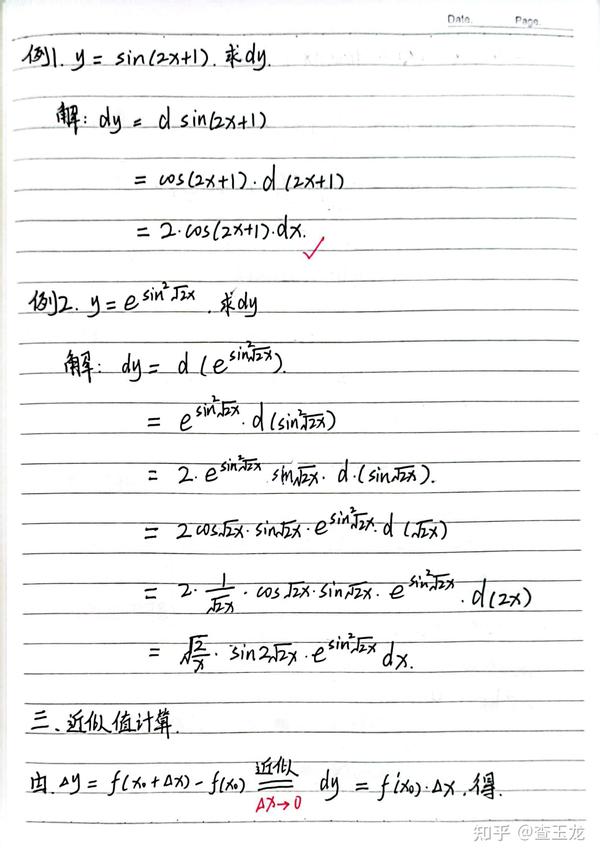 Date. Page.
例1. y = sin(2x+1). 求dy.
解: dy = d sin(2x+1)
= cos(2x+1)·d(2x+1)
= 2·cos(2x+1)·dx.
例2. y = e^{sin²√2x}. 求dy
解: dy = d(e^{sin²√2x}).
= e^{sin²√2x}·d(sin²√2x)
= 2·e^{sin²√2x} sin√2x·d·(sin√2x).
= 2cos√2x·sin√2x·e^{sin²√2x}·d(√2x)
= 2·1/√2x·cos√2x·sin√2x·e^{sin²√2x}·d(2x)
= √(2/x)·sin2√2x·e^{sin²√2x}dx.
三、近似值计算.
由.Δy = f(x₀+Δx)-f(x₀) 近似 == Δx→0 dy = f'(x₀)·Δx.得.
知乎 @查玉龙